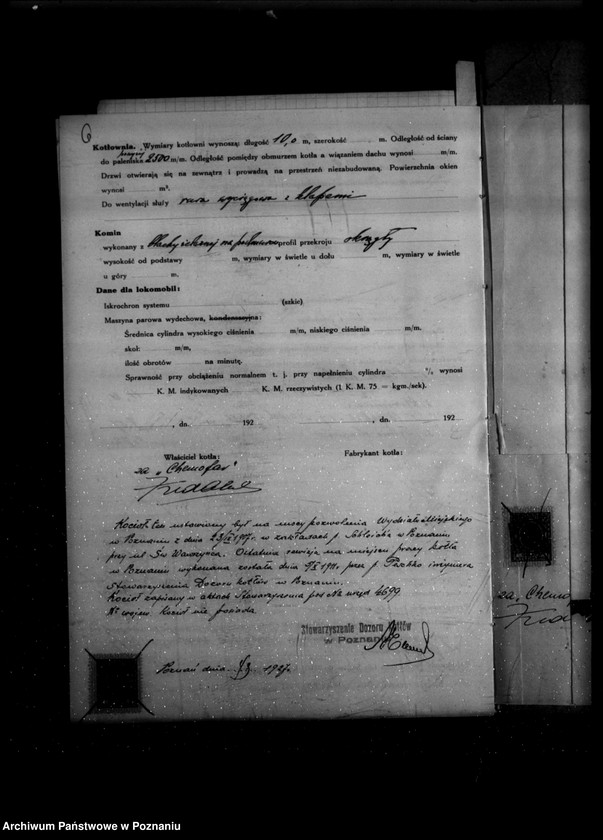 6
Kotłownia. Wymiary kotłowni wynoszą: długość 10,0 m, szerokość m. Odległość od ściany
do paleniska 2500 m/m. Odległość pomiędzy obmurzem kotła a wiązaniem dachu wynosi m/m.
Drzwi otwierają się na zewnątrz i prowadzą na przestrzeń niezabudowaną. Powierzchnia okien
wynosi m².
Do wentylacji służy rura wyciągowa z klapami
Komin
wykonany z blachy żelaznej na profil przekroju okrągły
wysokość od podstawy m, wymiary w świetle u dołu m, wymiary w świetle
u góry m.
Dane dla lokomobil:
Iskrochron systemu (szkic)
Maszyna parowa wydechowa, kondensacyjna:
Średnica cylindra wysokiego ciśnienia m/m, niskiego ciśnienia m/m.
skok: m/m,
ilość obrotów na minutę.
Sprawność przy obciążeniu normalnem t. j. przy napełnieniu cylindra %, wynosi
K. M. indykowanych K. M. rzeczywistych (1 K. M. 75 = kgm./sek).
, dn. 192 , dn. 192
Właściciel kotła: Fabrykant kotła:
za "Chemofar"
Kocioł ten ustawiony był na mocy pozwolenia Wydziału Miejskiego
w Poznaniu z dnia w zakładach p. w Poznaniu
przy ul. Św. Wawrzyńca. Ostatnia rewizja na miejscu pracy kotła
w Poznaniu wykonana została dnia przez p. inżyniera
Stowarzyszenia Dozoru Kotłów w Poznaniu.
Kocioł zapisany w aktach Stowarzyszenia pod Nr urzęd 4699
Nr wojew. Kocioł nie posiada.
Stowarzyszenie Dozoru Kotłów
w Poznaniu
Poznań dnia 1927r.
za "Chemo
Archiwum Państwowe w Poznaniu